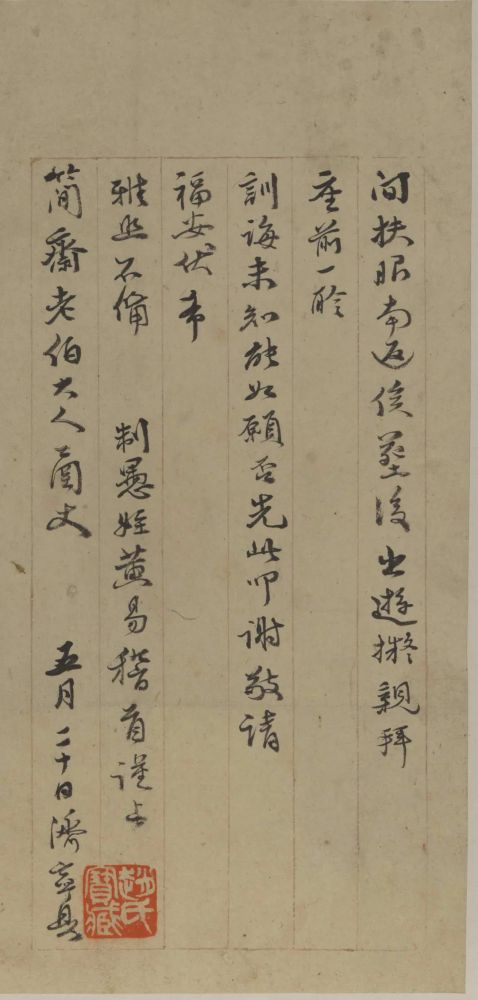 间扶柩南返俟葬後出遊擬親拜
座前一聆
訓誨未知能如願否先此叩謝敬請
福安伏希
雅照不備 制愚姪黃易稽首謹上
簡齋老伯大人函丈 五月二十日濟寧具
趙氏寶藏